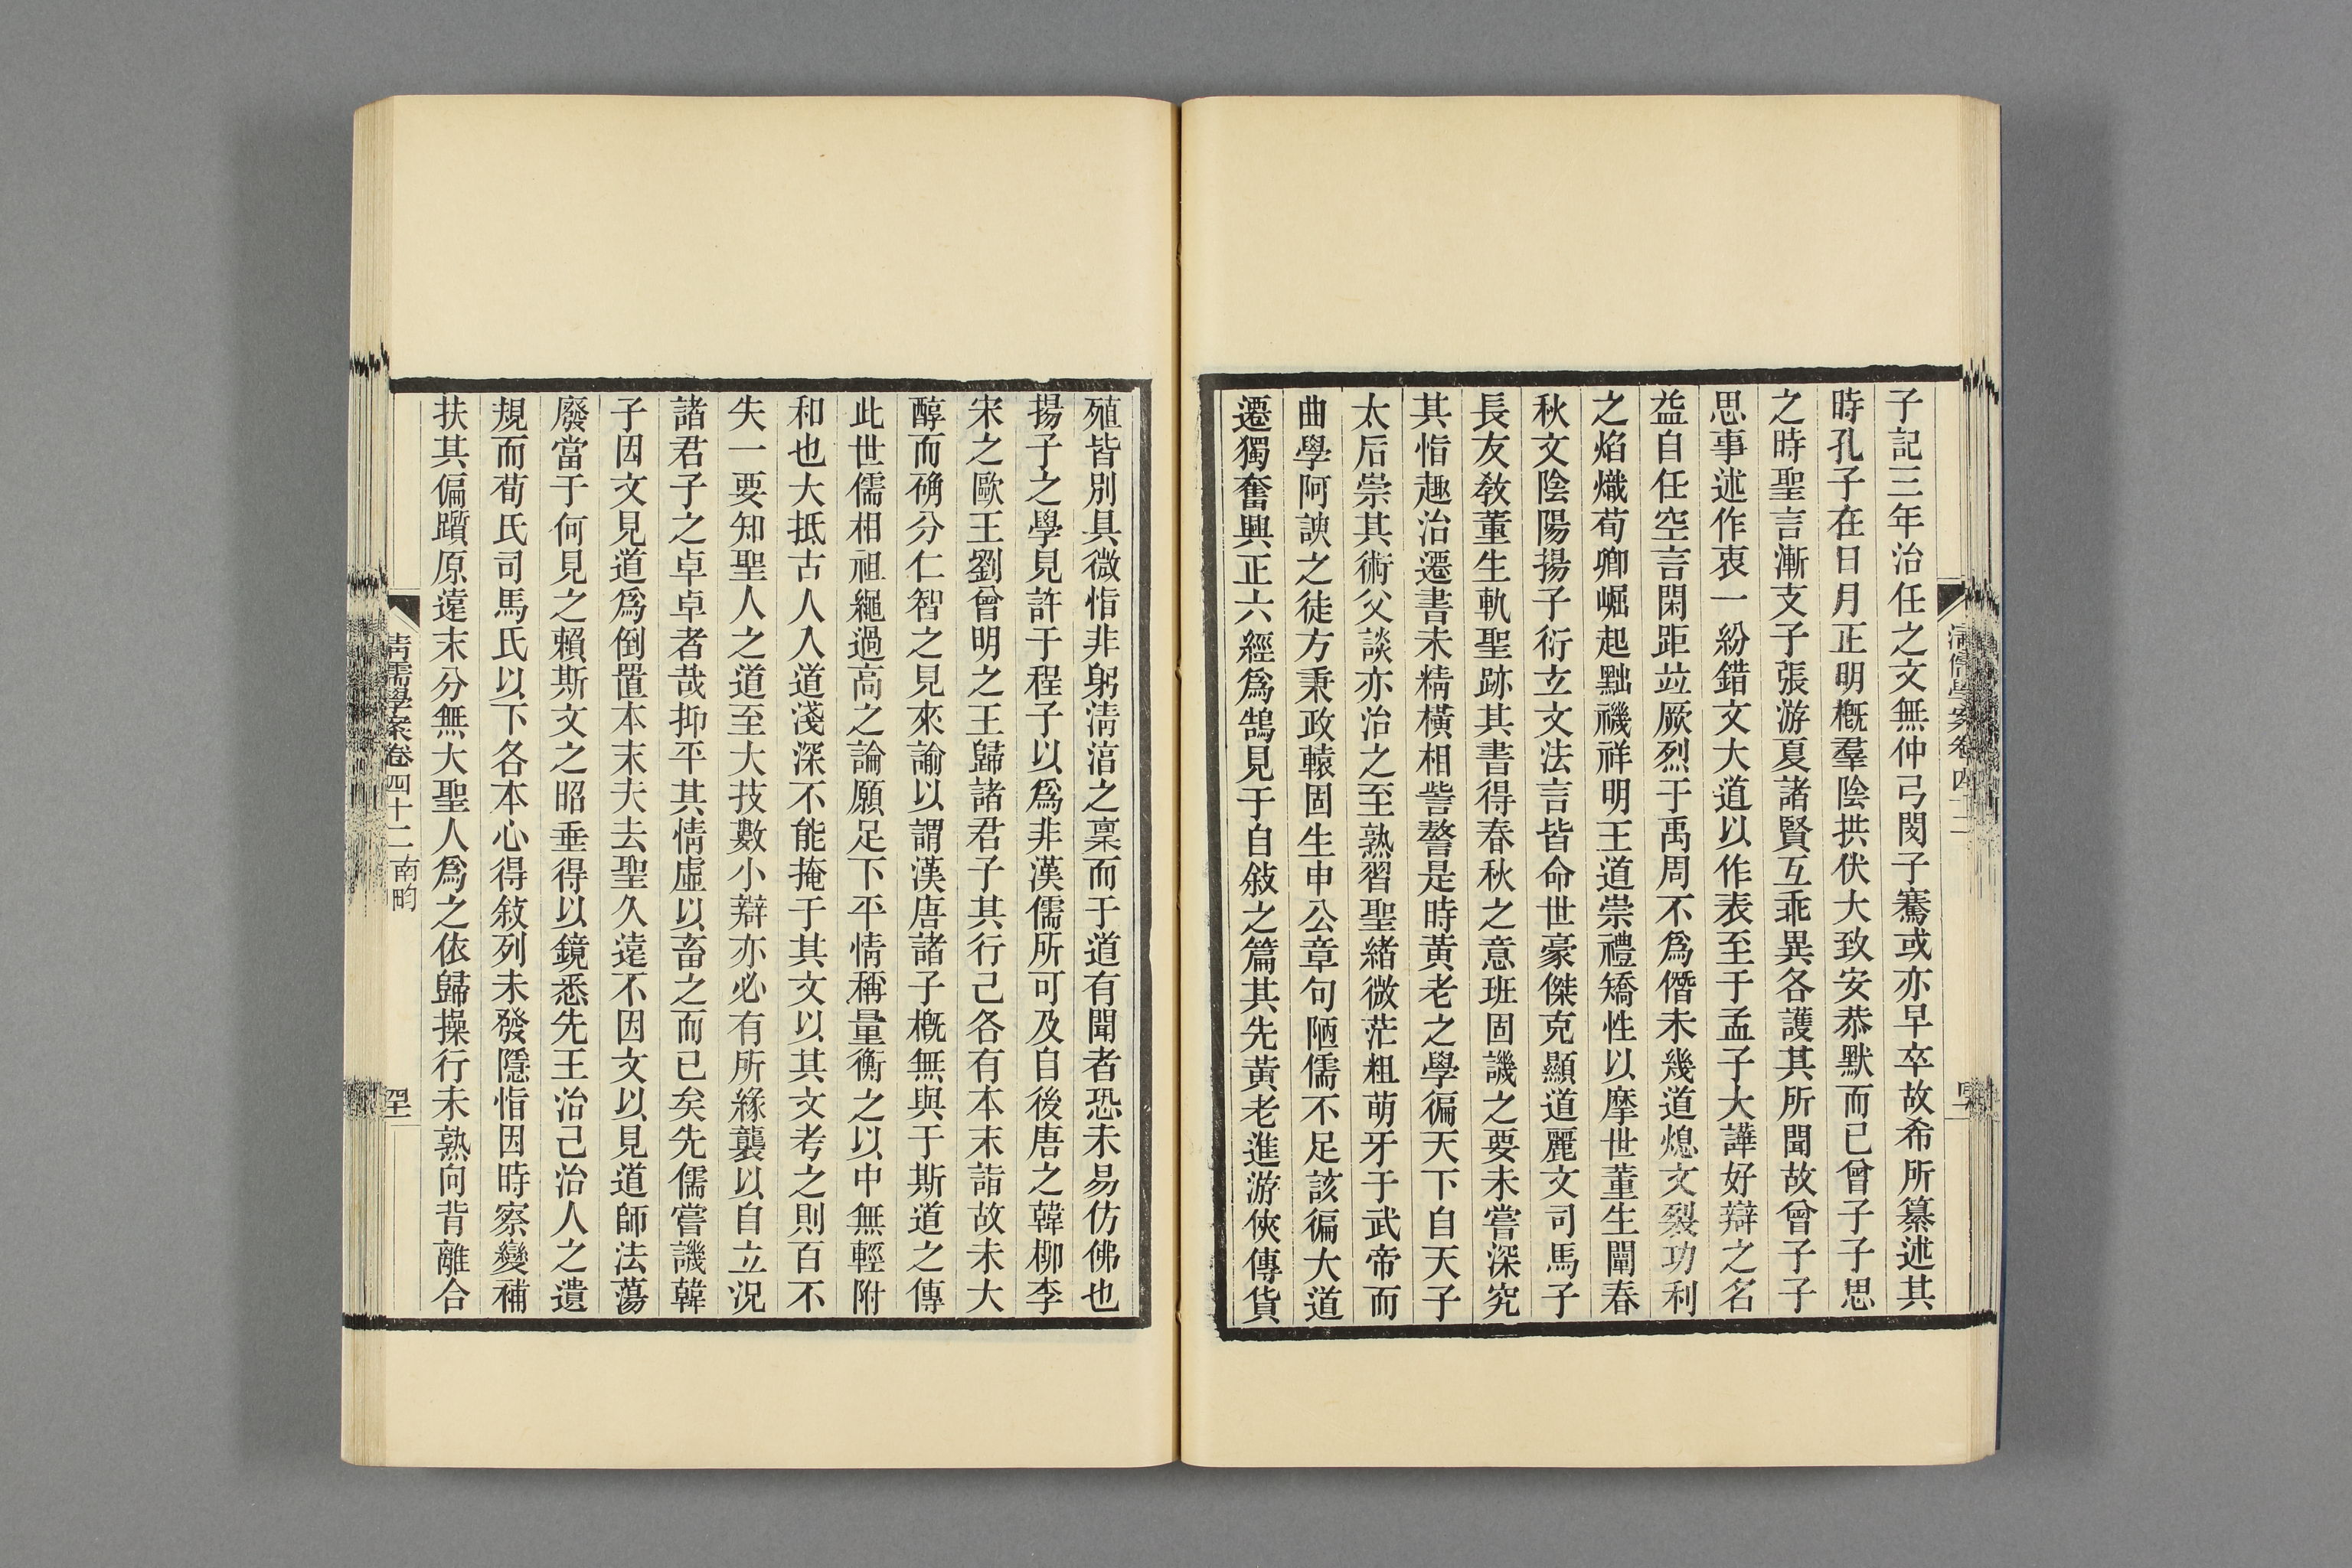 子記三年治任之文無仲弓閔子騫或亦早卒故希所纂述其
時孔子在日月正明概羣陰拱伏大致安恭默而已曾子子思
之時聖言漸支子張游夏諸賢互乖異各護其所聞故曾子子
思事述作衷一紛錯文大道以作表至于孟子大譁好辯之名
益自任空言閑距竝厥烈于禹周不爲僭未幾道熄文裂功利
之焰熾荀卿崛起黜禨祥明王道崇禮矯性以摩世董生闡春
秋文陰陽揚子衍立文法言皆命世豪傑克顯道麗文司馬子
長友敎董生軌聖跡其書得春秋之意班固譏之要未嘗深究
其恉趣治遷書未精橫相訾謷是時黃老之學徧天下自天子
太后崇其術父談亦治之至熟習聖緖微茫粗萌牙于武帝而
曲學阿諛之徒方秉政轅固生申公章句陋儒不足該徧大道
遷獨奮興正六經爲鵠見于自敍之篇其先黃老進游俠傳貨
殖皆別具微恉非躬淸涫之稟而于道有聞者恐未易仿佛也
揚子之學見許于程子以爲非漢儒所可及自後唐之韓柳李
宋之歐王劉曾明之王歸諸君子其行己各有本末詣故未大
醇而确分仁智之見來諭以謂漢唐諸子概無與于斯道之傳
此世儒相祖繩過高之論願足下平情稱量衡之以中無輕附
和也大抵古人入道淺深不能掩于其文以其文考之則百不
失一要知聖人之道至大技數小辯亦必有所緣襲以自立况
諸君子之卓卓者哉抑平其情虛以畜之而已矣先儒嘗譏韓
子因文見道爲倒置本末夫去聖久遠不因文以見道師法蕩
廢當于何見之賴斯文之昭垂得以鏡悉先王治己治人之遺
規而荀氏司馬氏以下各本心得敍列未發隱恉因時察變補
扶其偏躓原遠末分無大聖人爲之依歸操行未熟向背離合
淸儒學案卷四十二 南畇